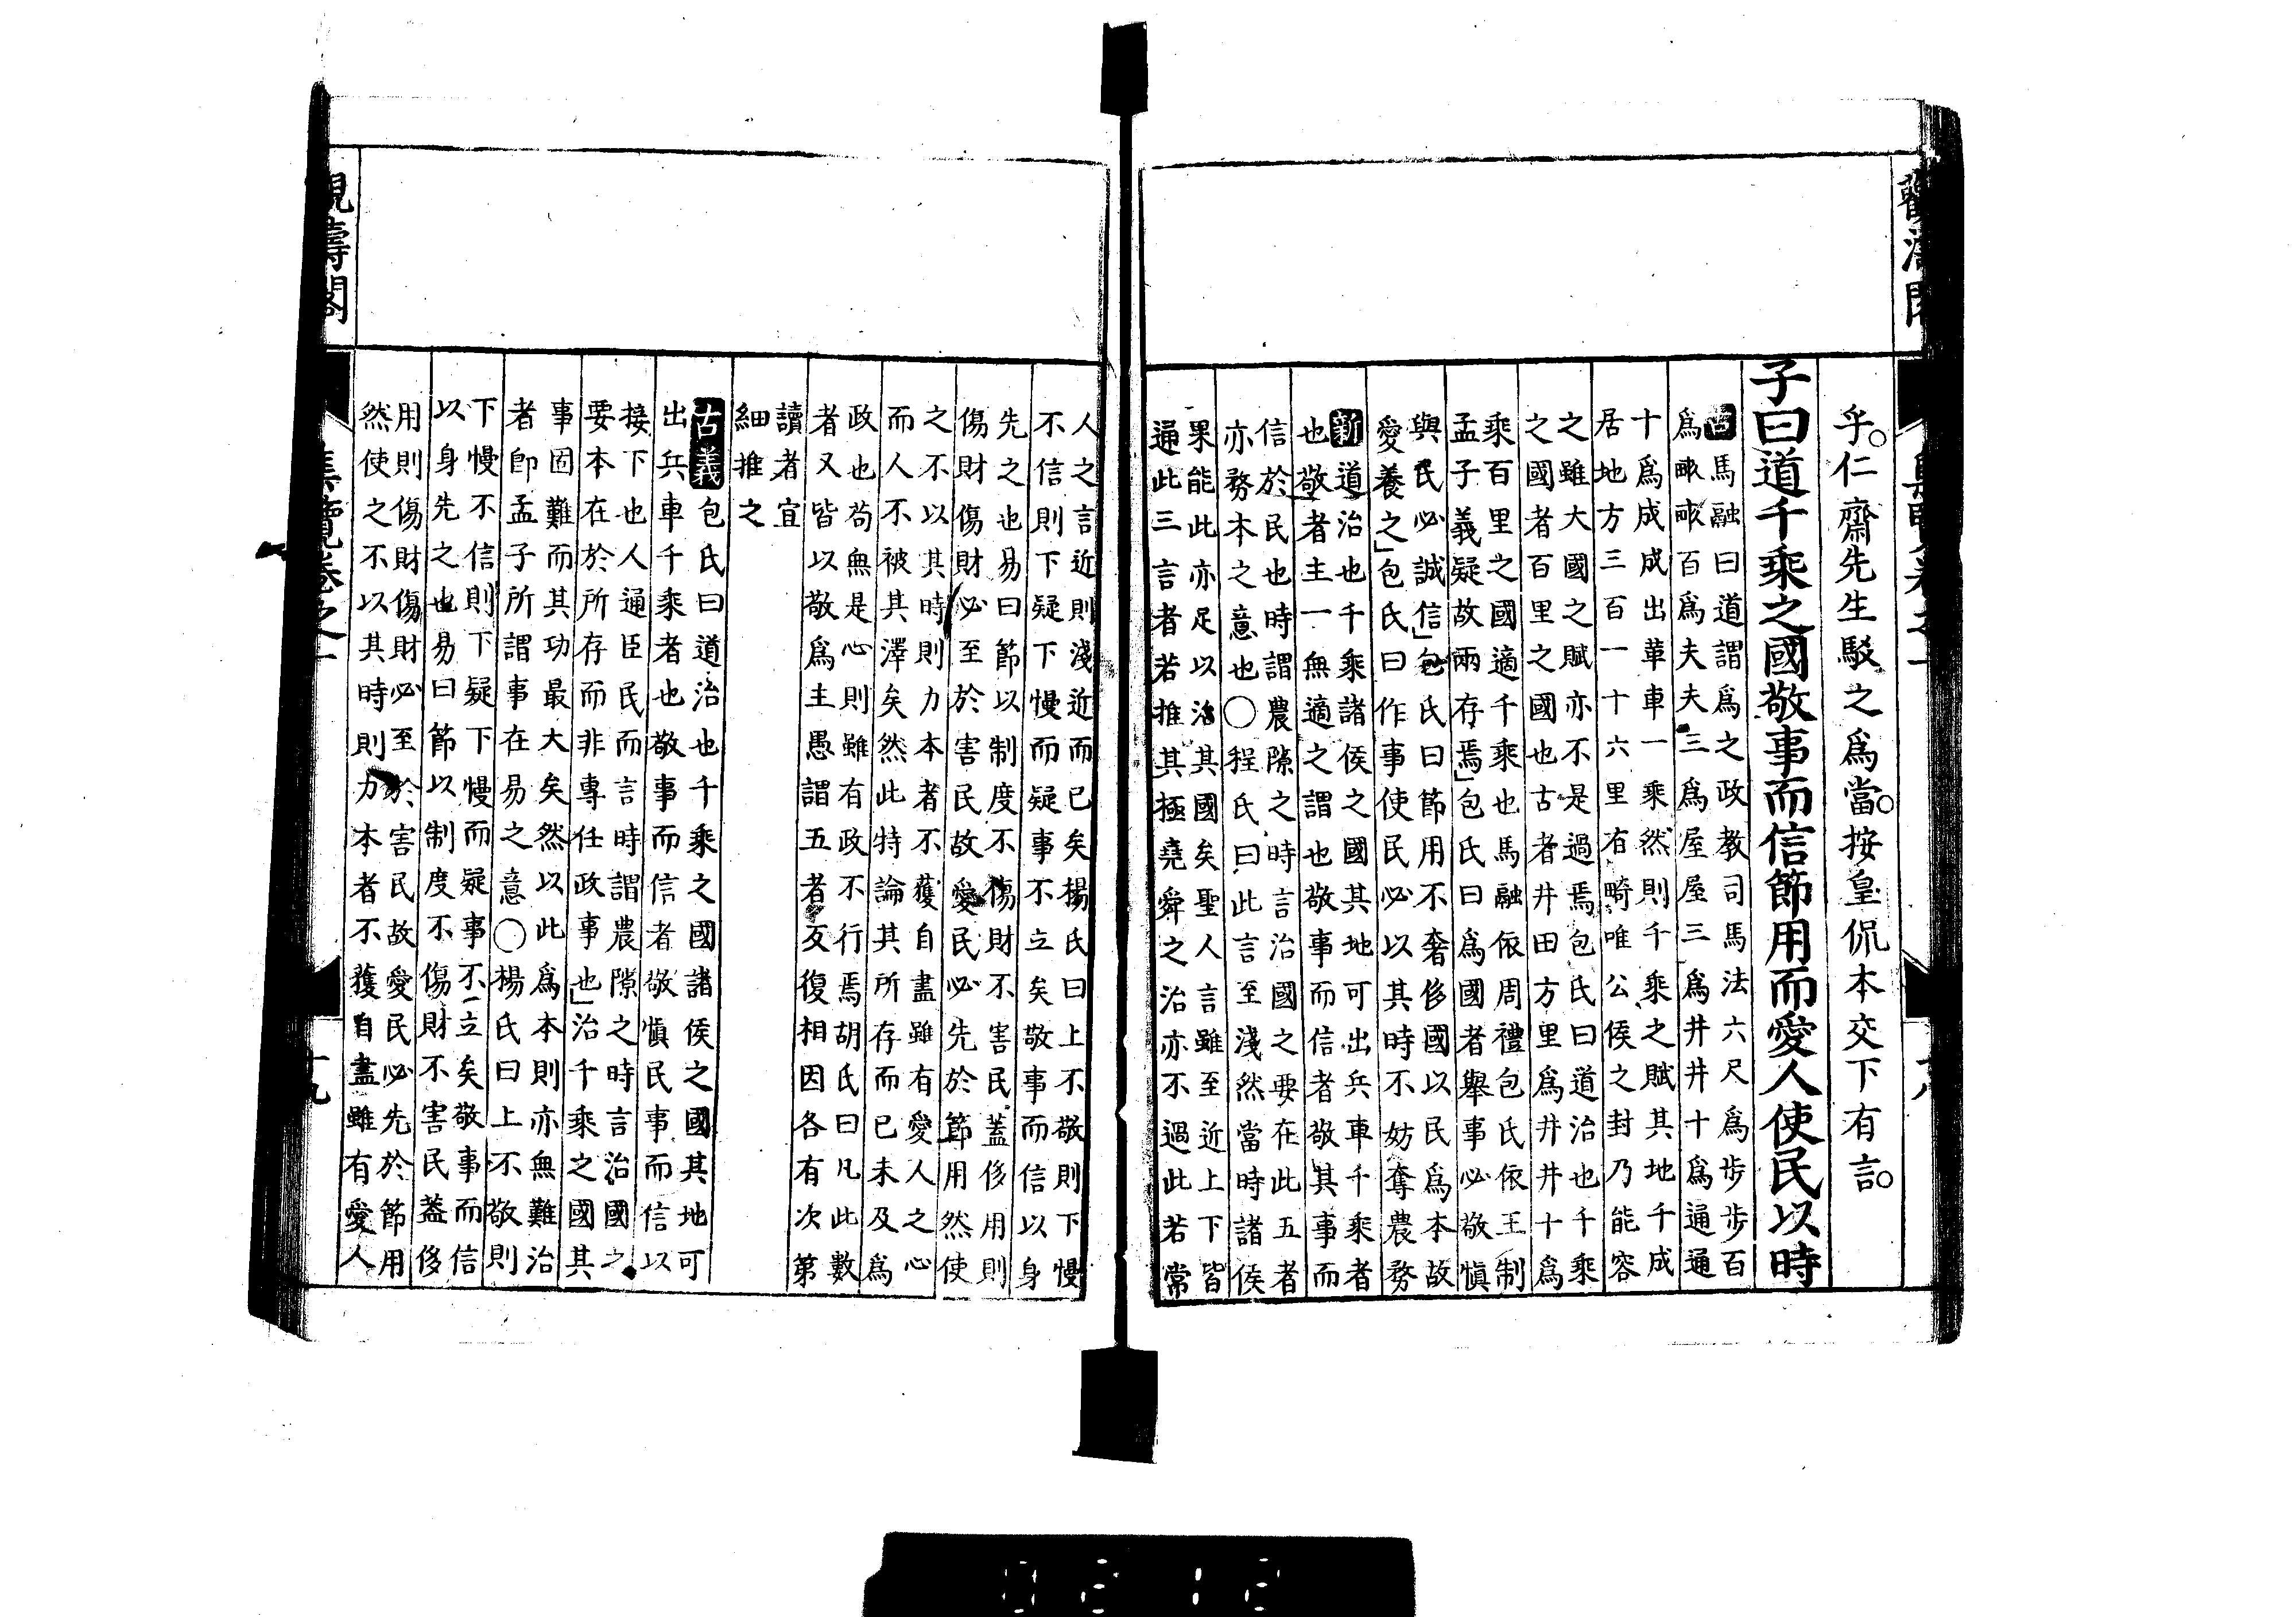 乎。仁齋先生駁之爲當。按皇侃本交下有言。
子曰道千乘之國敬事而信節用而愛人使民以時
古馬融曰道謂爲之政教司馬法六尺爲步步百
爲畮畮百爲夫夫三爲屋屋三爲井井十爲通通
十爲成成出革車一乘然則千乘之賦其地千成
居地方三百一十六里有畸唯公侯之封乃能容
之雖大國之賦亦不是過焉包氏曰道治也千乘
之國者百里之國也古者井田方里爲井井十爲
乘百里之國適千乘也馬融依周禮包氏依王制
孟子義疑故兩存焉」包氏曰爲國者舉事必敬愼
與民必誠信」包氏曰節用不奢侈國以民爲本故
愛養之」包氏曰作事使民必以其時不妨奪農務
新道治也千乘諸侯之國其地可出兵車千乘者
也敬者主一無適之謂也敬事而信者敬其事而
信於民也時謂農隙之時言治國之要在此五者
亦務本之意也○程氏曰此言至淺然當時諸侯
果能此亦足以治其國矣聖人言雖至近上下皆
通此三言者若推其極堯舜之治亦不過此若常
人之言近則淺近而已矣楊氏曰上不敬則下慢
不信則下疑下慢而疑事不立矣敬事而信以身
先之也易曰節以制度不傷財不害民蓋侈用則
傷財傷財必至於害民故愛民必先於節用然使
之不以其時則力本者不獲自盡雖有愛人之心
而人不被其澤矣然此特論其所存而已未及爲
政也苟無是心則雖有政不行焉胡氏曰凡此數
者又皆以敬爲主愚謂五者反復相因各有次第
讀者宜
細推之
古義包氏曰道治也千乘之國諸侯之國其地可
出兵車千乘者也敬事而信者敬愼民事而信以
接下也人通臣民而言時謂農隙之時言治國之
要本在於所存而非專任政事也」治千乘之國其
事固難而其功最大矣然以此爲本則亦無難治
者卽孟子所謂事在易之意○楊氏曰上不敬則
下慢不信則下疑下慢而疑事不立矣敬事而信
以身先之也易曰節以制度不傷財不害民蓋侈
用則傷財傷財必至於害民故愛民必先於節用
然使之不以其時則力本者不獲自盡雖有愛人
集覽卷之一
十九
觀濤閣